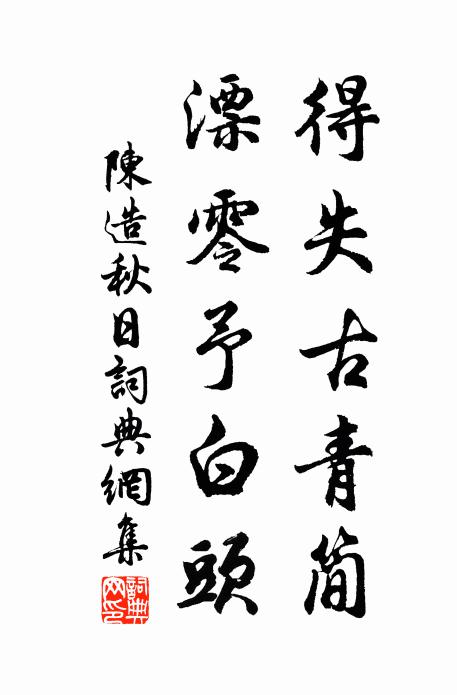 得失古青簡
漂零予白頭
陳造秋日詞典網集
詞典網印